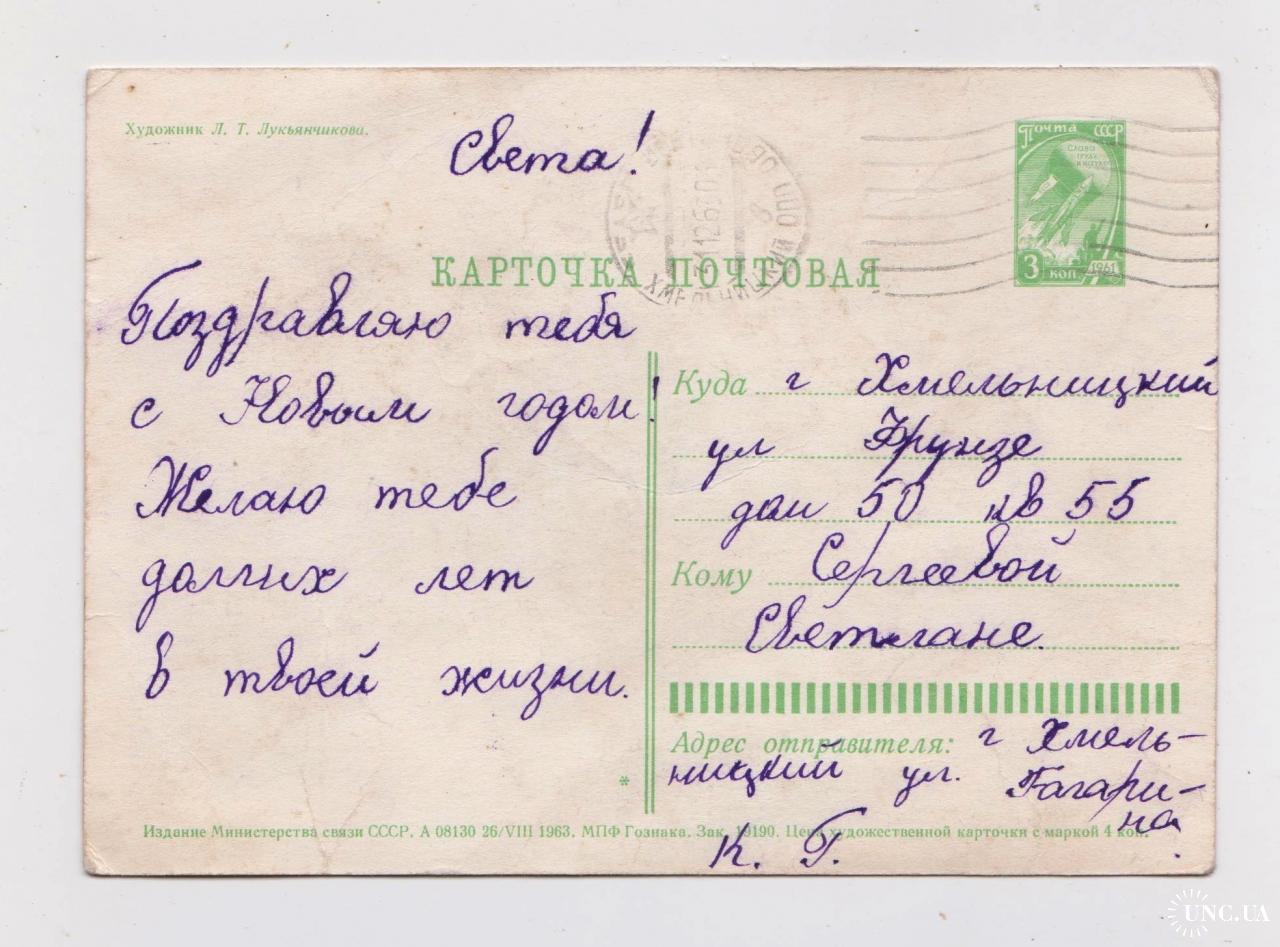 Художник Л. Т. Лукьянчикова.
Света!
Почта СССР
Слава
3 коп. 1961
КАРТОЧКА ПОЧТОВАЯ
ХМЕЛЬНИЦКИЙ
Поздравляю тебя
с Новым годом!
Желаю тебе
долгих лет
в твоей жизни.
Куда г Хмельницкий
ул Фрунзе
дом 50 кв 55
Кому Сергеевой
Светлане.
Адрес отправителя: г Хмель-
ницкий ул. Гагари-
на.
К. Г.
*
Издание Министерства связи СССР. А 08130 26/VIII 1963. МПФ Гознака. Зак. 19190. Цена художественной карточки с маркой 4 коп.
UNC.UA